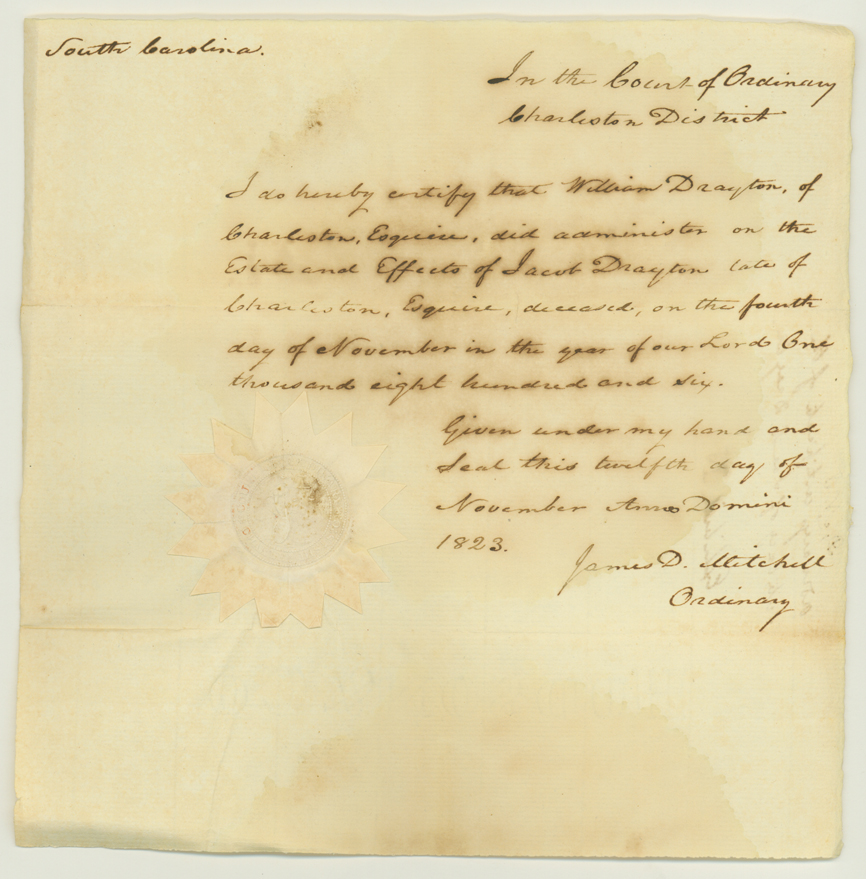 South Carolina.
In the Court of Ordinary
Charleston District
I do hereby certify that William Drayton, of
Charleston, Esquire, did administer on the
Estate and Effects of Jacob Drayton late of
Charleston, Esquire, deceased, on the fourth
day of November in the year of our Lord One
thousand eight hundred and six.
Given under my hand and
Seal this twelfth day of
November Anno Domini
1823.
James D. Mitchell
Ordinary